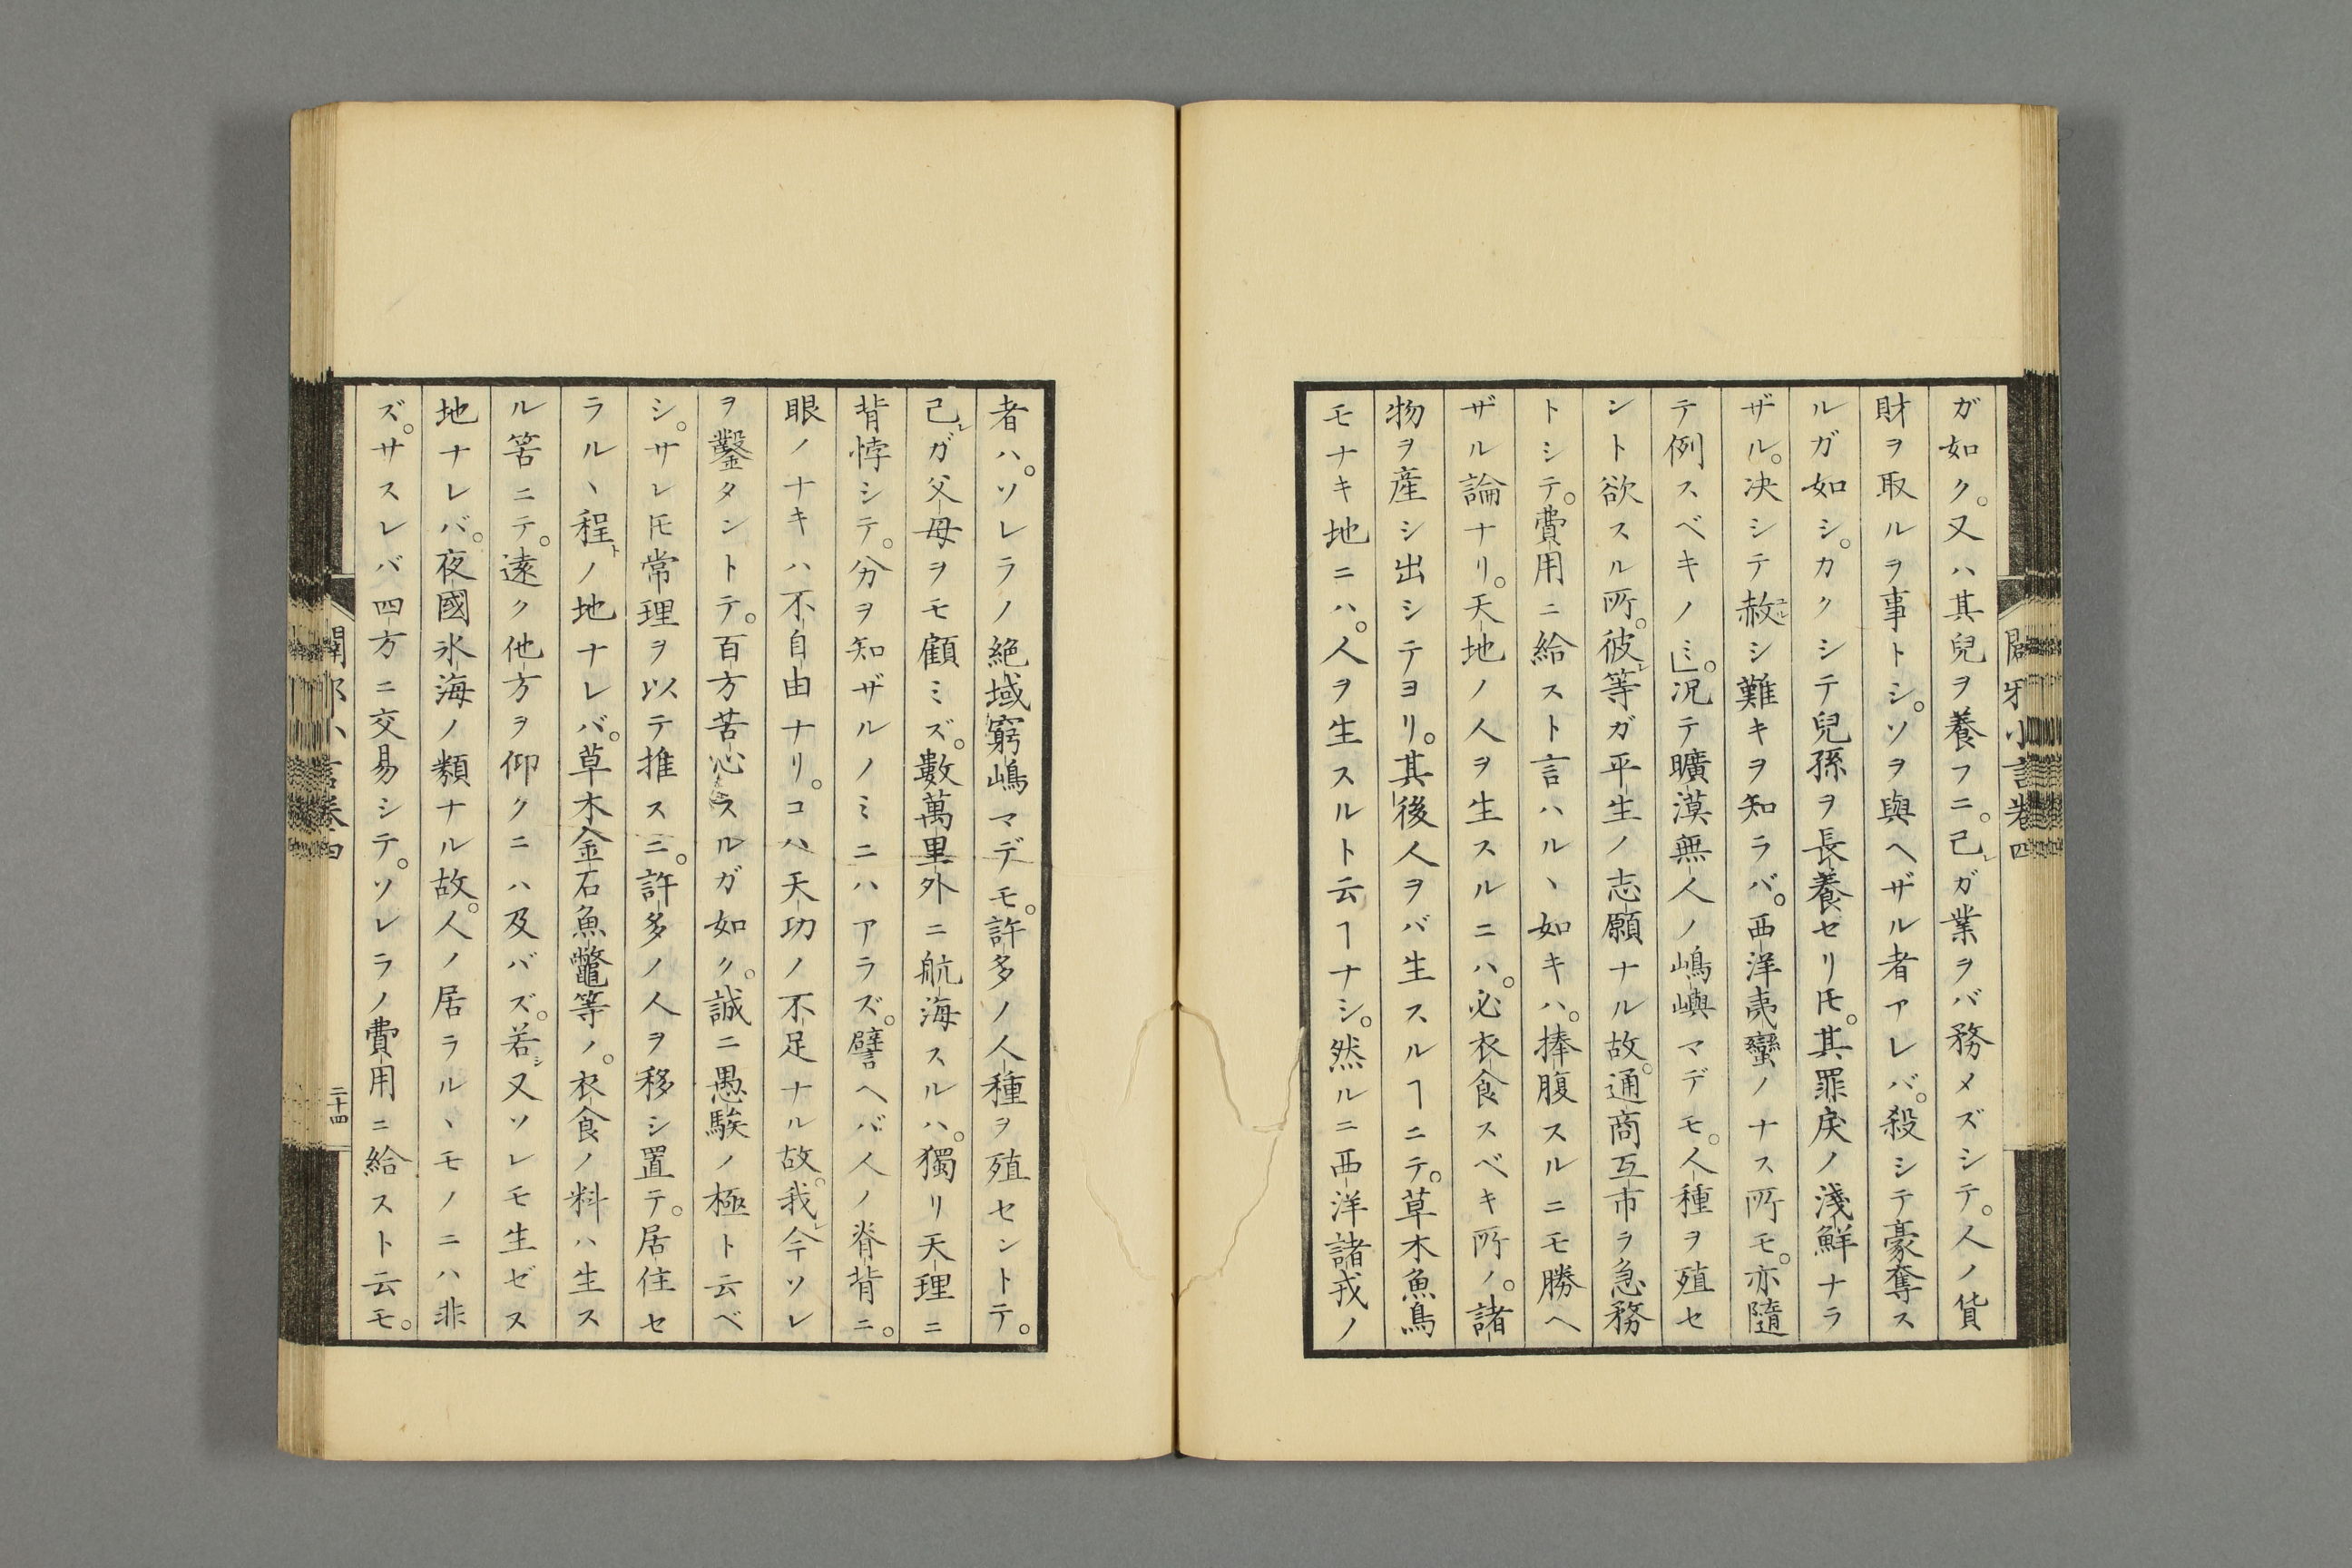 ガ如ク。又ハ其兒ヲ養フニ。己レガ業ヲバ務メズシテ。人ノ貨
財ヲ取ルヲ事トシ。ソヲ與ヘザル者アレバ。殺シテ豪奪ス
ルガ如シ。カクシテ兒孫ヲ長養セリ𪜈。其罪戾ノ淺鮮ナラ
ザル。决シテ赦ユルシ難キヲ知ラバ。西洋夷蠻ノナス所モ。亦隨
テ例スベキノミ」。況テ曠漠無人ノ嶋嶼マデモ。人種ヲ殖セ
ント欲スル所。彼レ等ガ平生ノ志願ナル故。通商互市ヲ急務
トシテ。費用ニ給スト言ハルヽ如キハ。捧腹スルニモ勝ヘ
ザル論ナリ。天地ノ人ヲ生スルニハ。必衣食スベキ所ノ。諸
物ヲ産シ出シテヨリ。其後人ヲバ生スルヿニテ。草木魚鳥
モナキ地ニハ。人ヲ生スルト云ヿナシ。然ルニ西洋諸戎ノ
者ハ。ソレラノ絶域窮嶋マデモ。許多ノ人種ヲ殖セントテ。
己レガ父母ヲモ顧ミズ。數萬里外ニ航海スルハ。獨リ天理ニ
背悖シテ。分ヲ知ザルノミニハアラズ。譬ヘバ人ノ脊背ニ。
眼ノナキハ不自由ナリ。コハ天功ノ不足ナル故。我レ今ソレ
ヲ鑿タントテ。百方苦心スルガ如ク。誠ニ愚騃ノ極ト云ベ
シ。サレ𪜈常理ヲ以テ推スニ。許多ノ人ヲ移シ置テ。居住セ
ラルヽ程トノ地ナレバ。草木金石魚鼈等ノ。衣食ノ料ハ生ス
ル筈ニテ。遠ク他方ヲ仰クニハ及バズ。若シ又ソレモ生ゼス
地ナレバ。夜國氷海ノ類ナル故。人ノ居ラルヽモノニハ非
ズ。サスレバ四方ニ交易シテ。ソレラノ費用ニ給スト云モ。
二十四